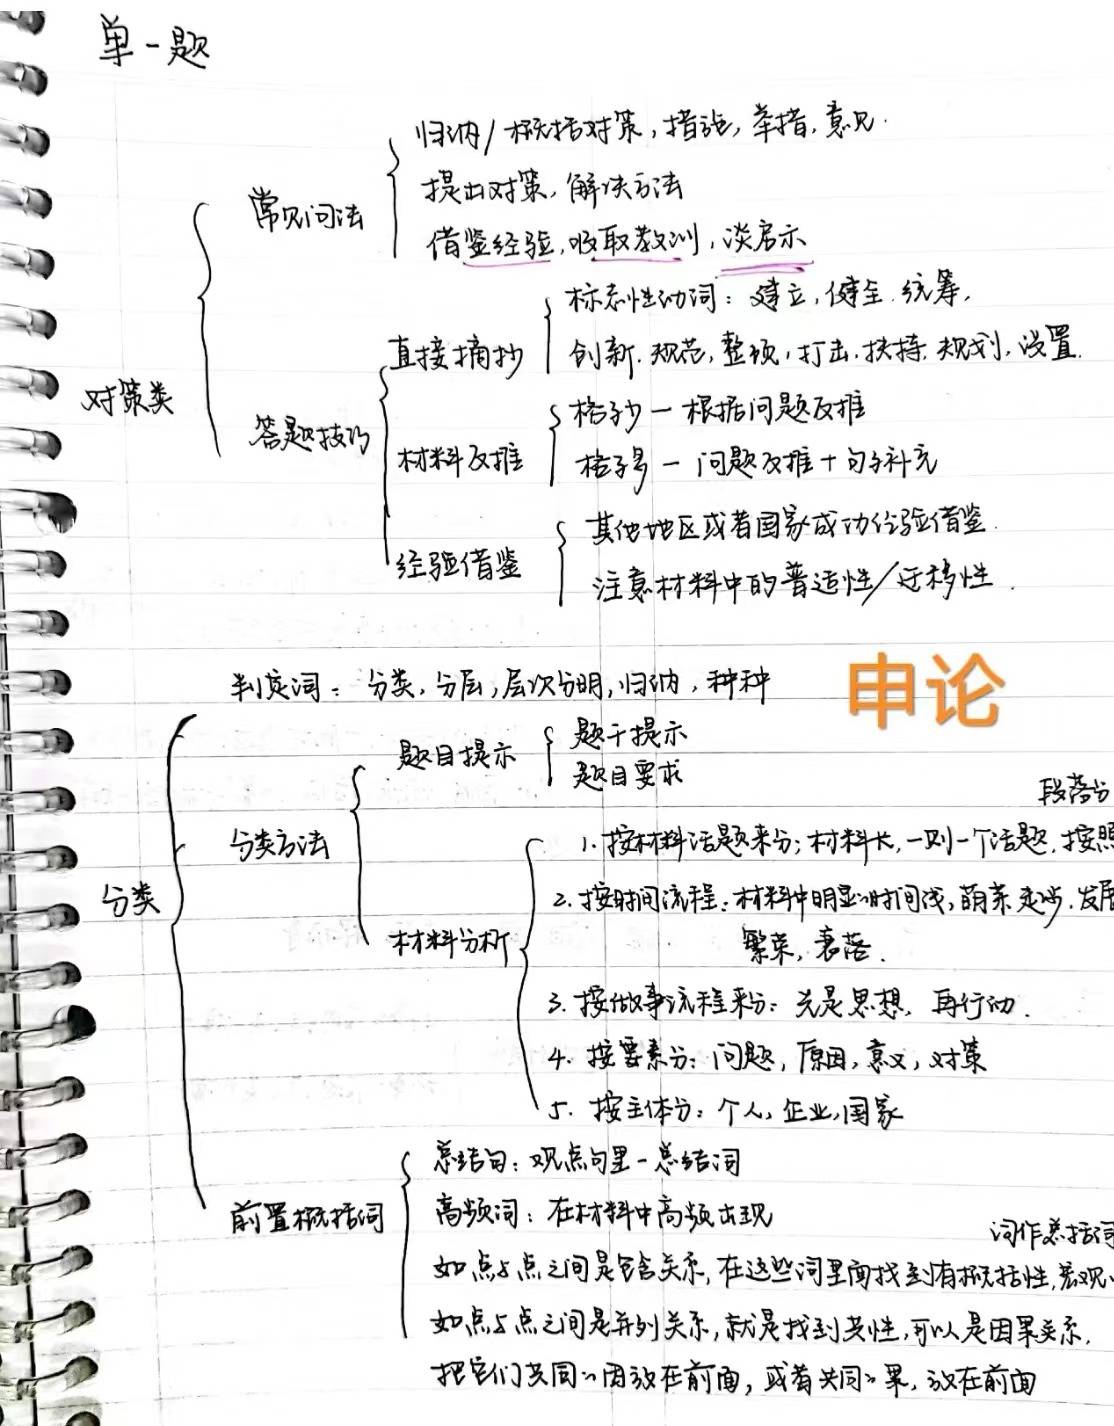 单一题
归纳/概括对策,措施,举措,意见.
提出对策,解决方法
常见问法
借鉴经验,吸取教训,谈启示
标志性动词:建立,健全,统筹,
直接摘抄
创新.规范,整顿,打击,扶持,规划,设置.
对策类
答题技巧
格子少一根据问题反推
材料反推
格子多一问题反推+句子补充
其他地区或者国家成功经验借鉴.
经验借鉴
注意材料中的普适性/迁移性.
申论
判定词:分类,分层,层次分明,归纳,种种
题目提示
题干提示
题目要求
段落分
分类方法
1.按材料话题来分;材料长,一则一个话题,按照
分类
2.按时间流程:材料中明显的时间线,萌芽起步.发展
材料分析
繁荣,衰落.
3.按做事流程来分:先是思想,再行动.
4.按要素分:问题,原因,意义,对策
5.按主体分:个人,企业,国家
总结句:观点句里一总结词
前置概括词
高频词:在材料中高频出现
词作总括词
如点与点之间是包含关系,在这些词里面找到有概括性,宏观
如点与点之间是并列关系,就是找到共性,可以是因果关系,
把它们共同的因放在前面,或者共同的果,放在前面